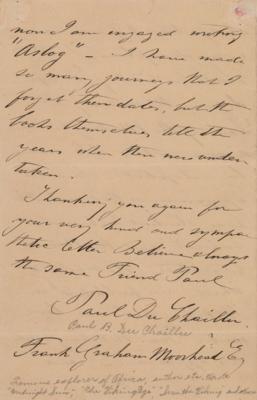 now I am engaged writing
"Aslog" - I have made
so many journeys that I
forget their dates, but the
books themselves tell the
years when they were under
taken.
Thanking you again for
your very kind and sympa
thetic letter Believe always
the same Friend Paul
Paul Du Chaillu.
Paul B. Du Chaillu
Frank Graham Moorhead Esq
Famous explorer of Africa, author etc. Wrote
"Midnight Sun", "The Viking Age"